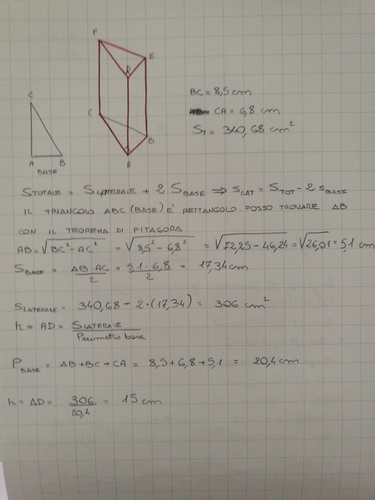 F
E
D
C
C
B
A
A B
BASE
BC = 8,5 cm
CA = 6,8 cm
ST = 340,68 cm²
STOTALE = SLATERALE + 2 SBASE ⇒ SLAT = STOT - 2 SBASE
IL TRIANGOLO ABC (BASE) E' RETTANGOLO. POSSO TROVARE AB
CON IL TEOREMA DI PITAGORA
AB = √BC² - AC² = √8,5² - 6,8² = √72,25 - 46,24 = √26,01 = 5,1 cm
SBASE = AB · AC / 2 = 5,1 · 6,8 / 2 = 17,34 cm
SLATERALE = 340,68 - 2 · (17,34) = 306 cm²
h = AD = SLATERALE / Perimetro base
PBASE = AB + BC + CA = 8,5 + 6,8 + 5,1 = 20,4 cm
h = AD = 306 / 20,4 = 15 cm